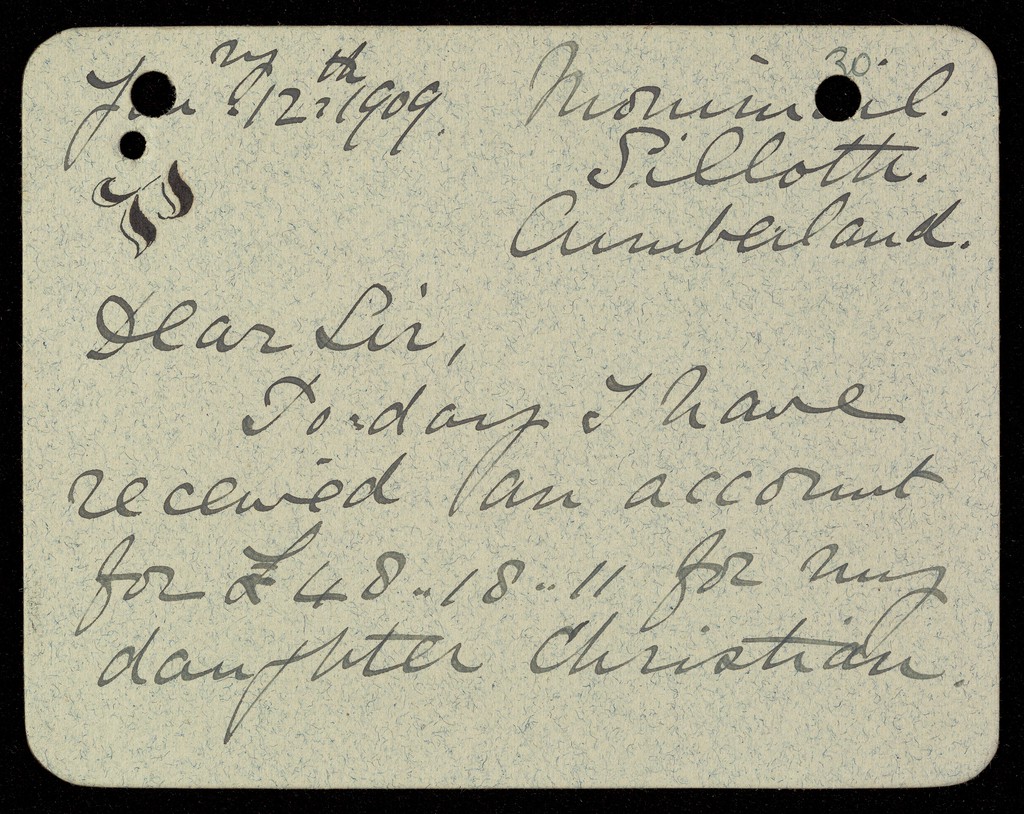 30.
Jan ry 12th 1909. Monimail.
Silloth.
Cumberland.
Dear Sir,
To-day I have
received an account
for £48..18..11 for my
daughter Christian.